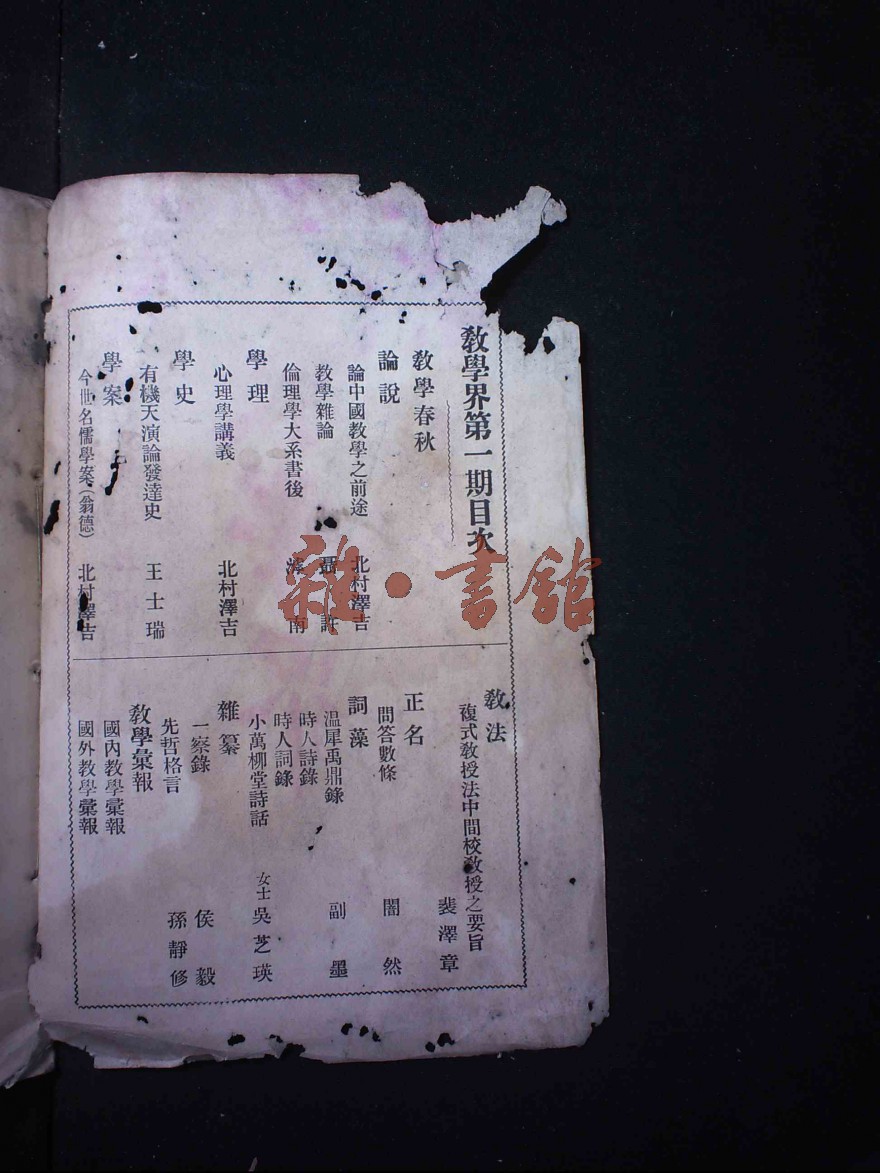 教學界第一期目次
教學春秋
論說
論中國教學之前途 北村澤吉
教學雜論
倫理學大系書後
學理
心理學講義 北村澤吉
學史
有機天演論發達史 王士瑞
學案
今世名儒學案(翁德) 北村澤吉
教法
複式教授法中間校教授之要旨
裴澤章
正名
問答數條 闇然
詞藻
溫犀禹鼎錄 副墨
時人詩錄
時人詞錄
小萬柳堂詩話 女士吳芝瑛
雜纂
一察錄 侯毅
先哲格言 孫靜修
教學彙報
國內教學彙報
國外教學彙報
雜·書館